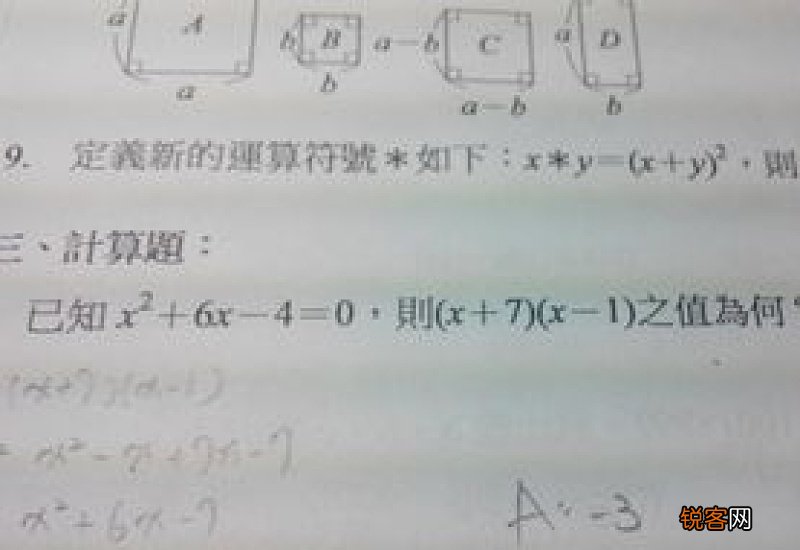 a A
b B a－b C a D
a b a－b b
9. 定義新的運算符號＊如下：x＊y＝(x＋y)²，則
三、計算題：
已知 x²＋6x－4＝0，則(x＋7)(x－1)之值為何
(x+7)(x-1)
= x²-x+7x-7
x²+6x-7
A：-3
锐客网